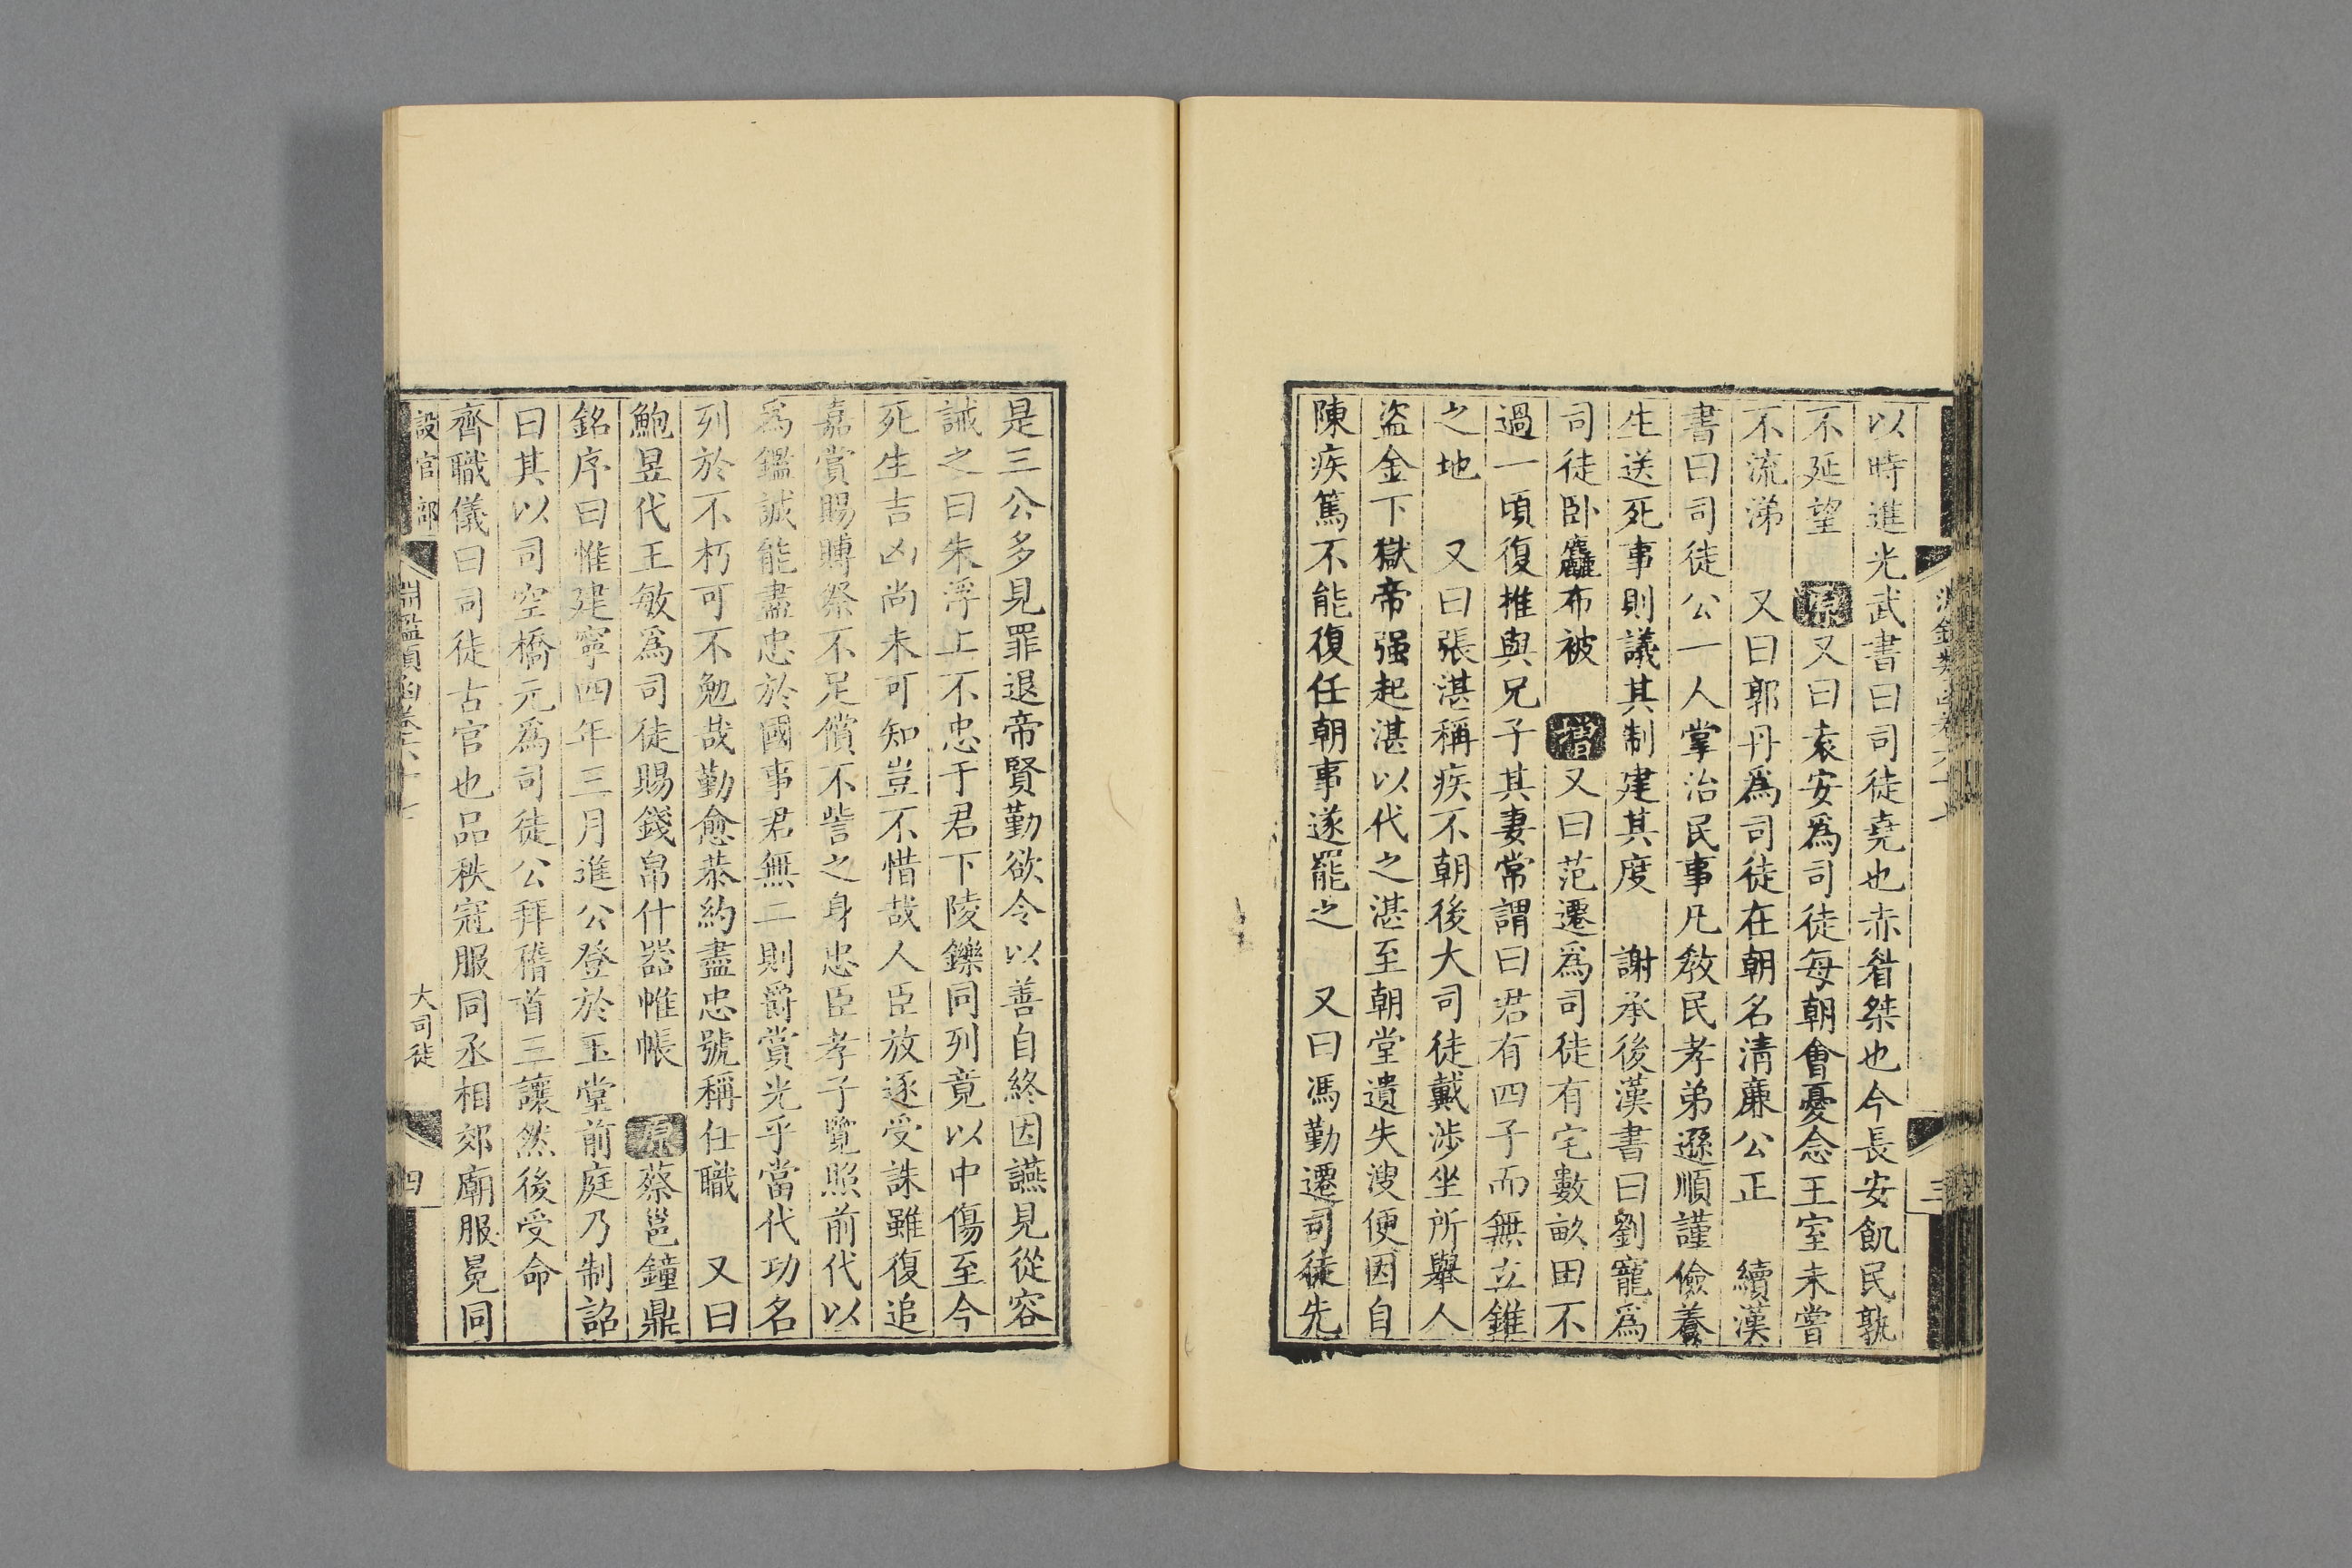 以時進光武書曰司徒堯也赤眉桀也今長安飢民孰
不延望原又曰袁安爲司徒每朝會憂念王室未嘗
不流涕 又曰郭丹爲司徒在朝名清廉公正 續漢
書曰司徒公一人掌治民事凡敎民孝弟遜順謹儉養
生送死事則議其制建其度 謝承後漢書曰劉寵爲
司徒卧麤布被 增又曰范遷爲司徒有宅數畝田不
過一頃復推與兄子其妻常謂曰君有四子而無立錐
之地 又曰張湛稱疾不朝後大司徒戴涉坐所舉人
盜金下獄帝强起湛以代之湛至朝堂遺失溲便因自
陳疾篤不能復任朝事遂罷之 又曰馮勤遷司徒先
是三公多見罪退帝賢勤欲令以善自終因讌見從容
誡之曰朱浮上不忠于君下陵鑠同列竟以中傷至今
死生吉凶尚未可知豈不惜哉人臣放逐受誅雖復追
嘉賞賜賻祭不足償不訾之身忠臣孝子覽照前代以
爲鑑誠能盡忠於國事君無二則爵賞光乎當代功名
列於不朽可不勉哉勤愈恭約盡忠號稱任職 又曰
鮑昱代王敏爲司徒賜錢帛什器帷帳 原蔡邕鐘鼎
銘序曰惟建寧四年三月進公登於玉堂前庭乃制詔
曰其以司空橋元爲司徒公拜稽首三讓然後受命
齊職儀曰司徒古官也品秩冠服同丞相郊廟服冕同
設官部 淵鑑類函卷六十七 大司徒 四